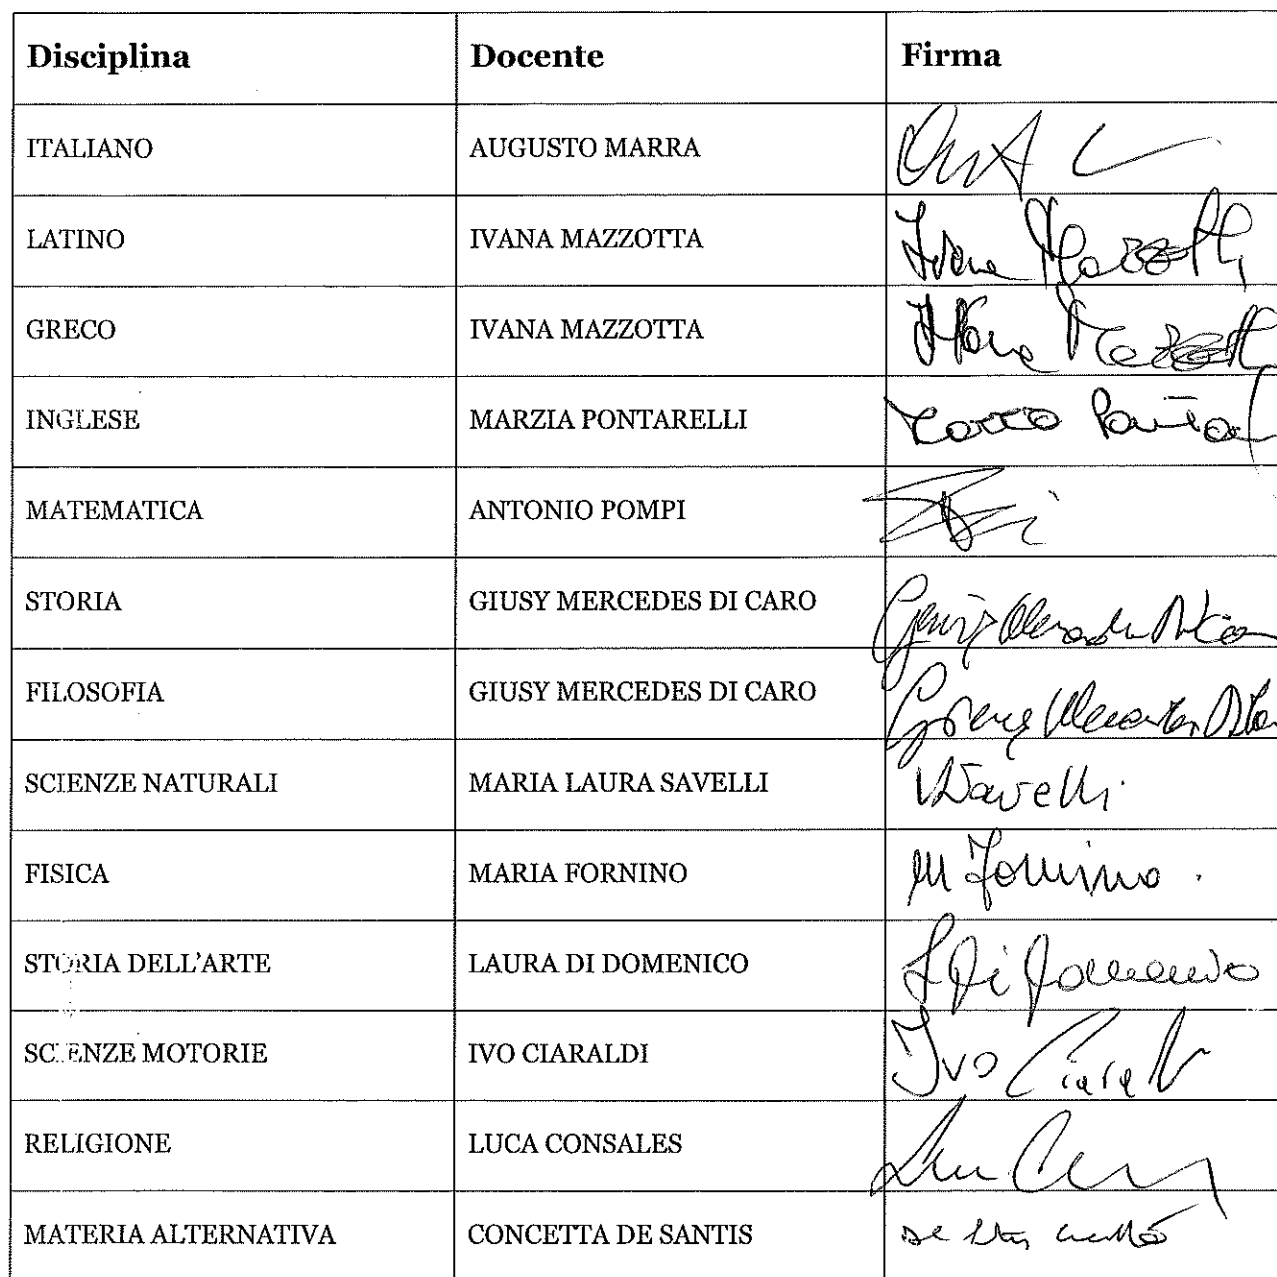 Disciplina Docente Firma
ITALIANO AUGUSTO MARRA
LATINO IVANA MAZZOTTA Ivana Mazzotta
GRECO IVANA MAZZOTTA Ivana Mazzotta
INGLESE MARZIA PONTARELLI
MATEMATICA ANTONIO POMPI
STORIA GIUSY MERCEDES DI CARO
FILOSOFIA GIUSY MERCEDES DI CARO
SCIENZE NATURALI MARIA LAURA SAVELLI Savelli
FISICA MARIA FORNINO M Fornino
STORIA DELL'ARTE LAURA DI DOMENICO L Di Domenico
SCIENZE MOTORIE IVO CIARALDI Ivo
RELIGIONE LUCA CONSALES
MATERIA ALTERNATIVA CONCETTA DE SANTIS